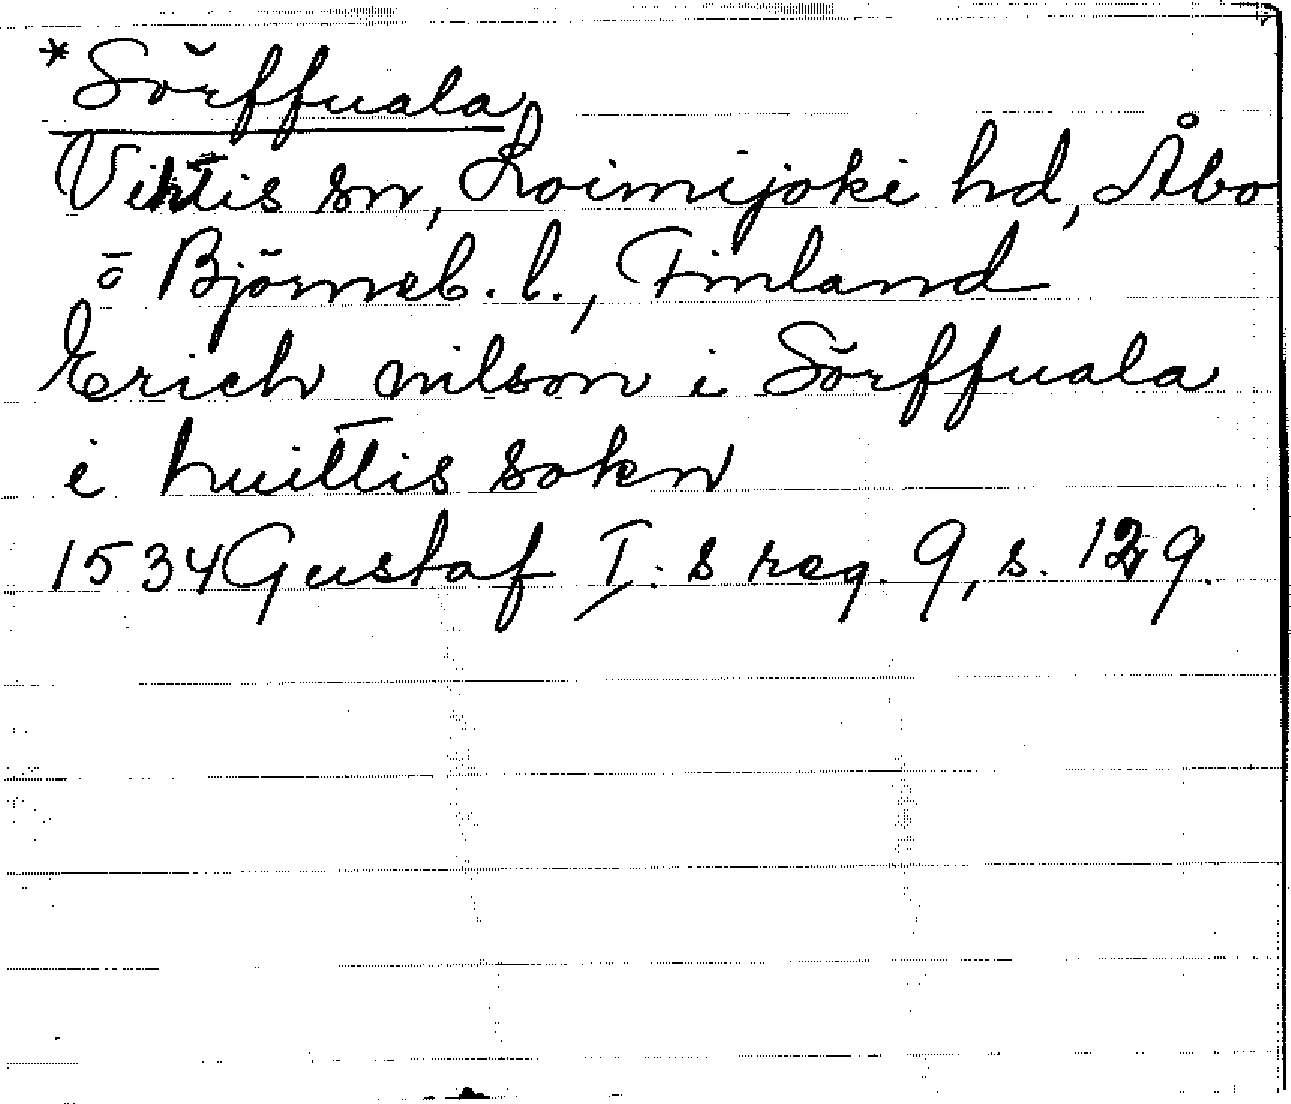 *Sŏrffuala
Vittis sn, Loimijoki hd, Åbo
o Björneb. l., Finland
Erich nilson i Sŏrffuala
i huittis sokn
1534 Gustaf I:s reg. 9, s. 129.